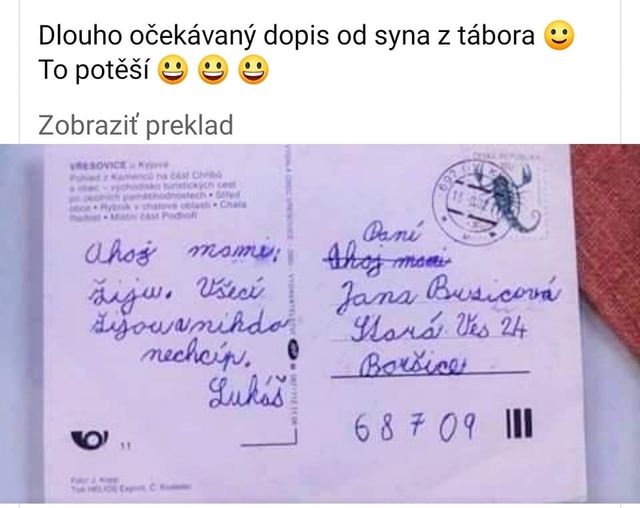 Dlouho očekávaný dopis od syna z tábora
To potěší
Zobraziť preklad
VŘESOVICE u Kyjova
Pohled z Kamenců na část Chřibů
a obec - východisko turistických cest
po okolních pamětihodnostech • Střed
obce • Rybník v chatové oblasti • Chata
Radost • Místní část Podhoří
ČESKÁ REPUBLIKA
Ahoj mami,
žiju. Všeci
žijou a nikdo
nechcíp.
Lukáš
11
Foto: J. Kopp
Tisk HELIOS Export, Č. Kostelec
Paní
Ahoj mami
Jana Busicová
Stará Ves 24
Boršice
68709